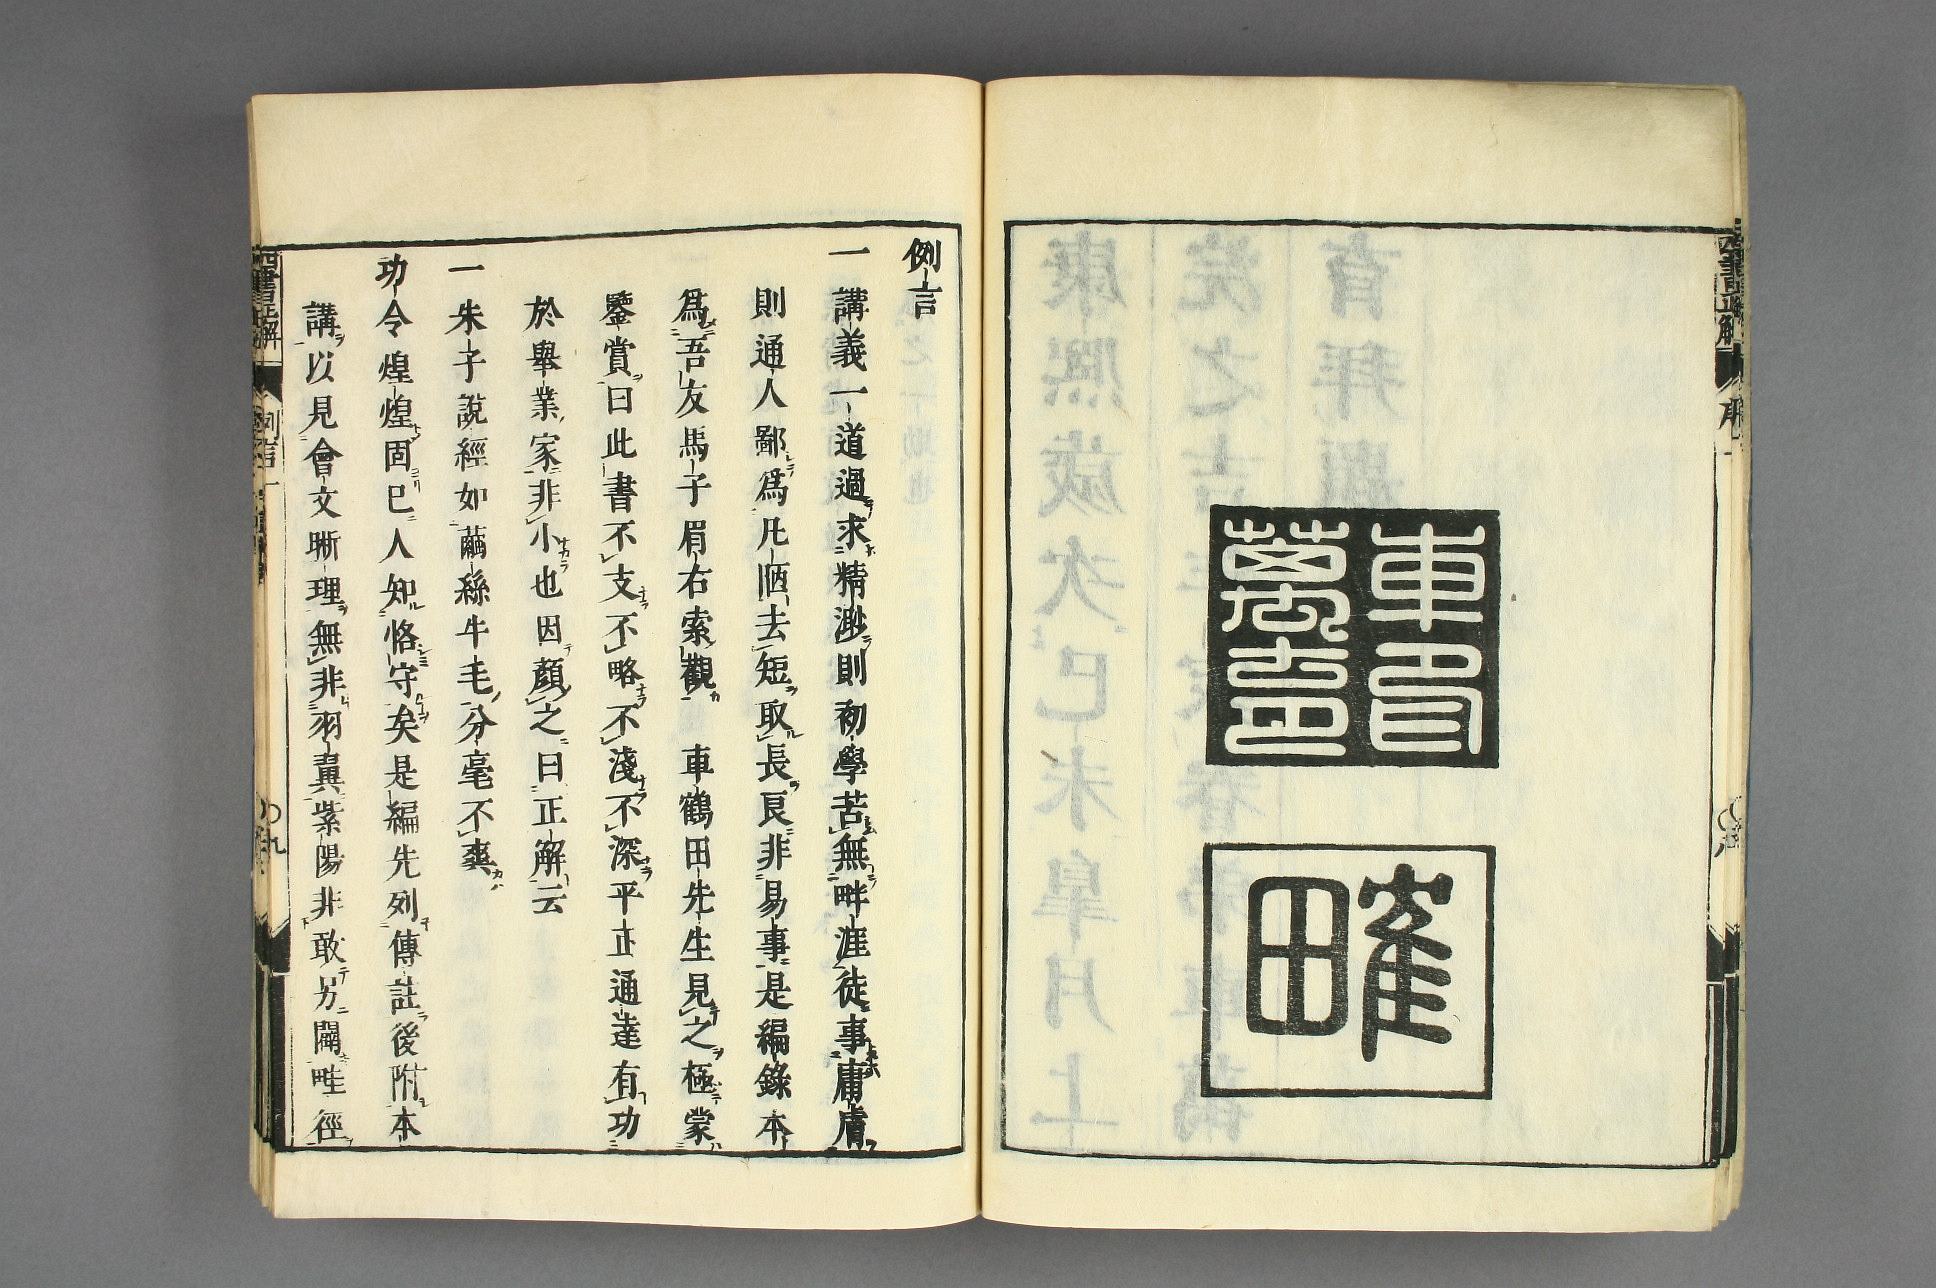 四書正解
序
八
車印
萬育
隺田
例言
一講義一道過求精渺則初學苦無畔涯徒事庸膚
則通人鄙爲凡陋去短取長良非易事是編錄本
爲吾友馬子眉右索觀　車鶴田先生見之極蒙
鑒賞曰此書不支不略不淺不深平正通達有功
於舉業家非小也因顏之曰正解云
一朱子說經如繭絲牛毛分毫不爽
功令煌煌固已人知恪守矣是編先列傳註後附本
講以見會文晰理無非羽翼紫陽非敢另闢畦徑
四書正解
例言一
九